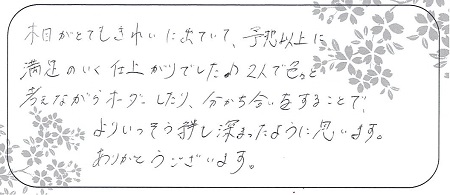 木目がとてもきれいに出ていて、予想以上に
満足のいく仕上がりでした♪2人で色々と
考えながらオーダーしたり、分かち合いをすることで、
よりいっそう絆し深まったように思います。
ありがとうございます。